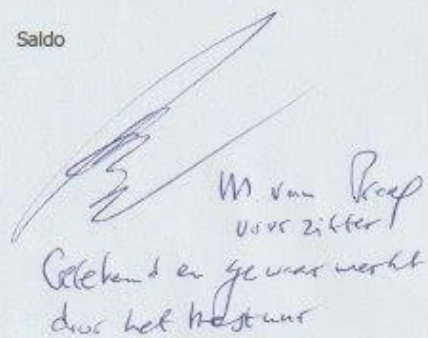 Saldo
M. van Praag
voorzitter
Getekend en gewaarmerkt
door het bestuur